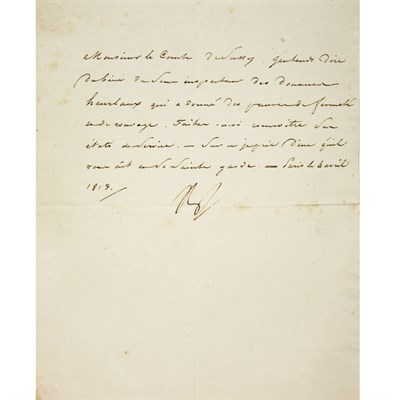 Monsieur le Comte de Sussy. J'entends dire
du bien du Sieur inspecteur des Douanes
heurtaux qui a donné des preuves de fermeté
et de courage. Faites-moi connoître ses
états de service. — Sur ce je prie Dieu qu'il
vous ait en Sa Sainte garde. — Paris le 4 avril
1813.